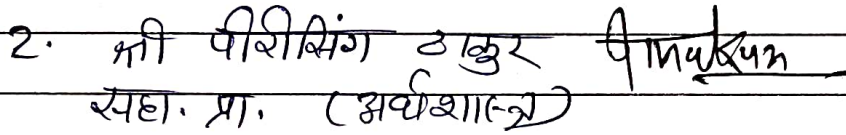 2. श्री पीरीसिंग ठाकुर
सहा. प्रा. (अर्थशास्त्र)